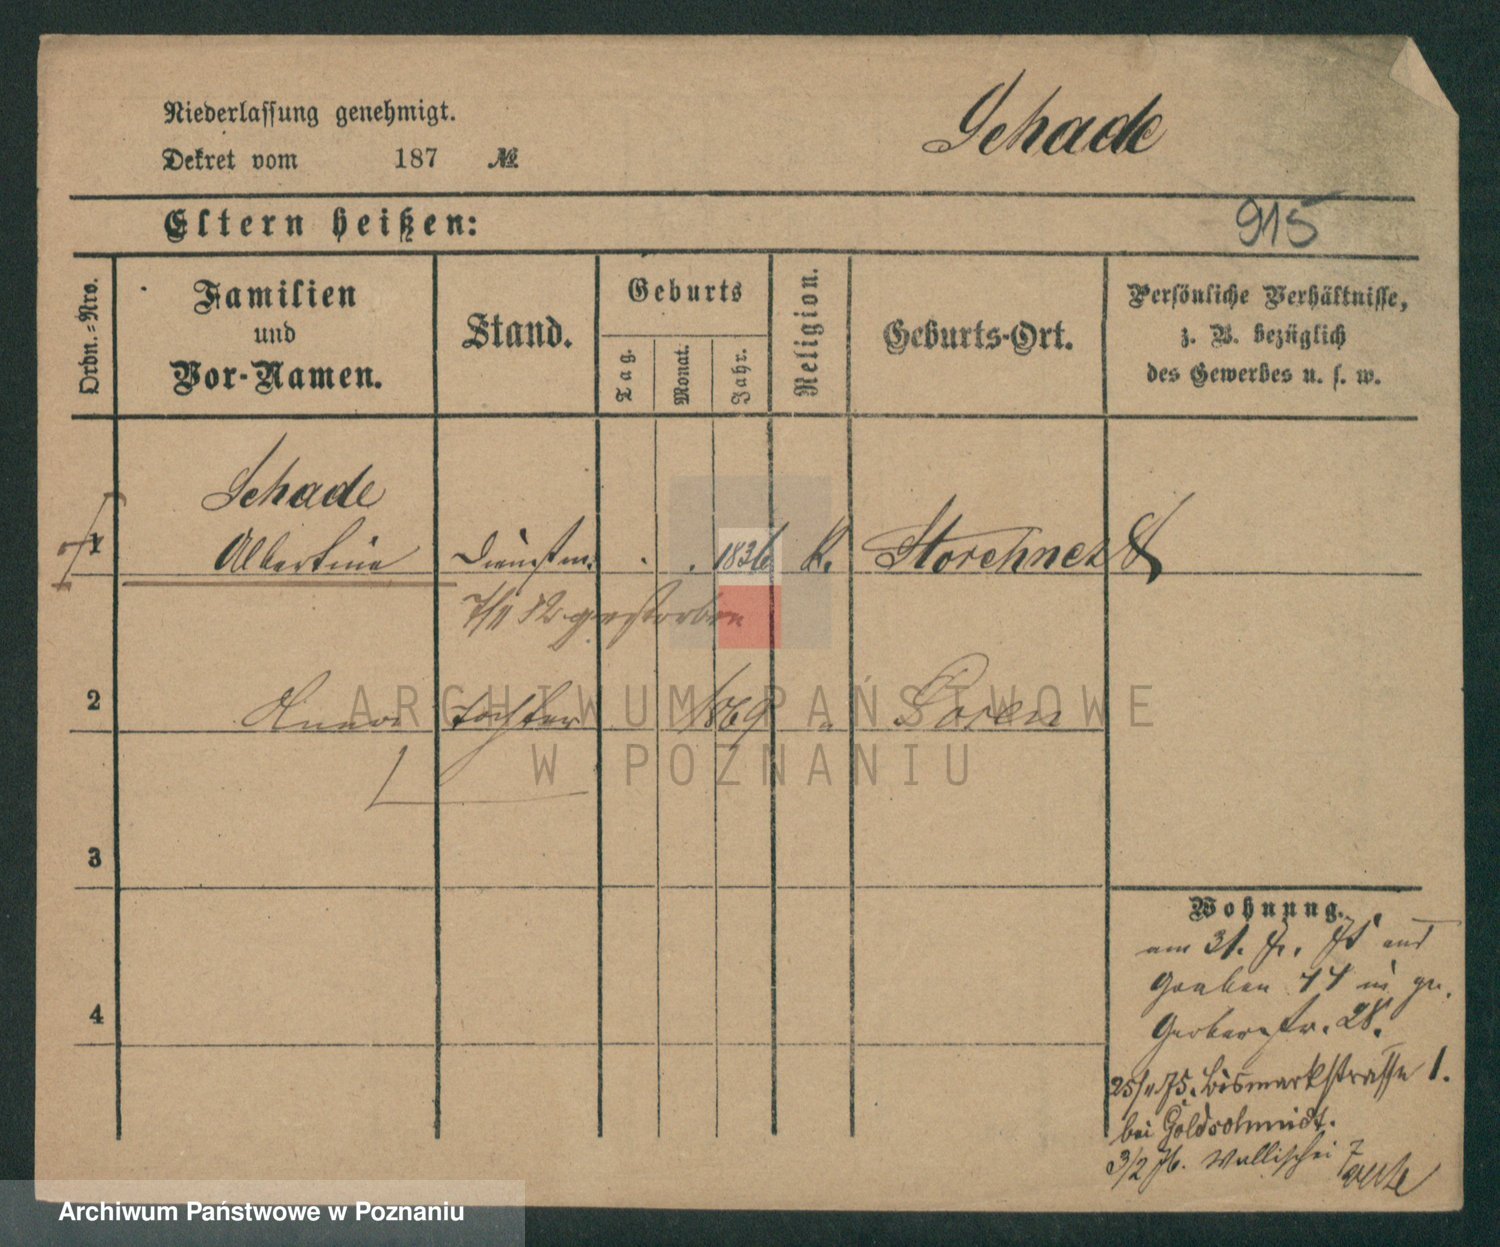 Niederlassung genehmigt.
Dekret vom 187 №
Schade
Eltern heißen:
915
Ordn.-Nro.
Familien
und
Vor-Namen.
Stand.
Geburts
Tag.
Monat.
Jahr.
Religion.
Geburts-Ort.
Persönliche Verhältnisse,
z. B. bezüglich
des Gewerbes u. s. w.
Schade
1 Albertine Dienstm. . . 1836 K. Storchnest
gestorben
2 Anna Tochter 1869 " Posen
3
4
Wohnung.
am 31.
Graben in gr.
Gerberstr. 28.
25/11 75. Bismarkstrasse 1.
bei Goldschmidt.
3/2 76. Wallischei 7
ARCHIWUM PAŃSTWOWE
W POZNANIU
Archiwum Państwowe w Poznaniu